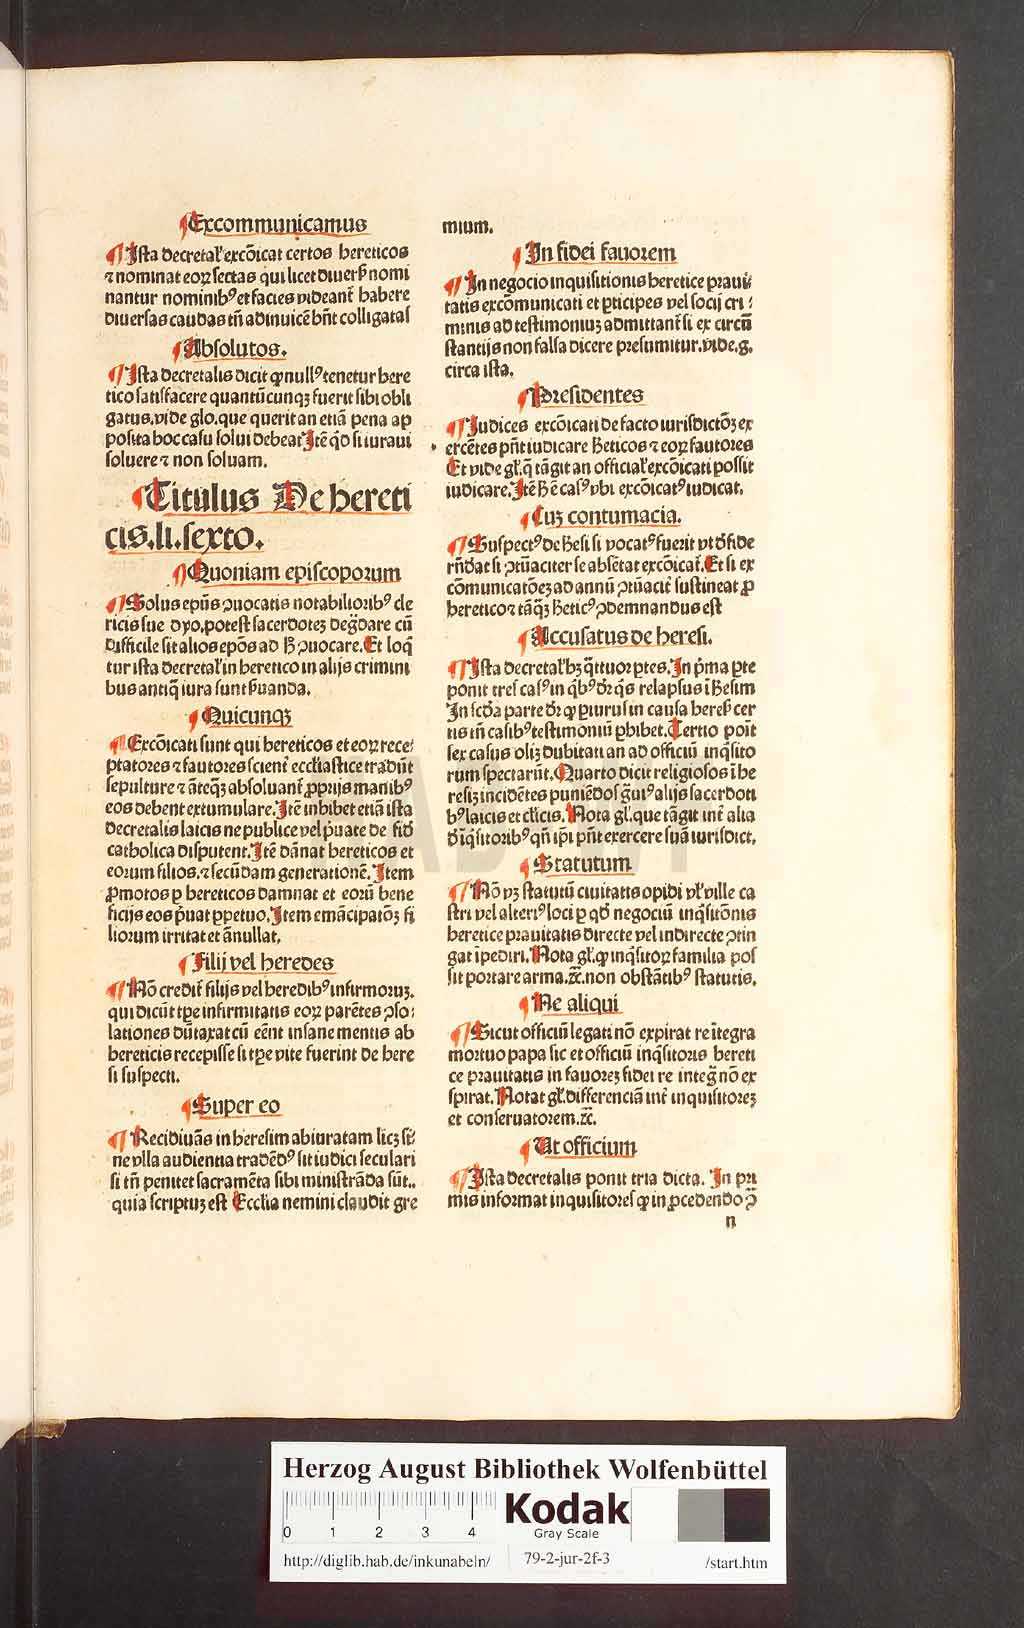 ¶Excommunicamus
¶Ista decretal' excōicat certos hereticos
⁊ nominat eoꝝ sectas qui licet diuers̄ nomi
nantur nominibꝰ et facies videant̄ habere
diuersas caudas tn̄ adinuicē bn̄t colligatas
¶Absolutos.
¶Ista decretalis dicit ꝙ nullꝰ tenetur here
tico satisfacere quantūcunqꝫ fuerit sibi obli
gatus. vide glo. que querit an etiā pena ap
posita hoc casu solui debeat Itē qd̄ si iuraui
soluere ⁊ non soluam.
¶Titulus De hereti
cis. li. sexto.
¶Quoniam episcoporum
¶Solus ep̄us ꝯuocatis notabilioribꝰ cle
ricis sue dyo. potest sacerdotez deg̈dare cū
difficile sit alios ep̄os ad ꝯuocare. Et loq̄
tur ista decretal' in heretico in alijs crimini
bus antiq̄ iura sunt
¶Quicunqꝫ
¶Excōicati sunt qui hereticos et eoꝝ rece⸗
ptatores ⁊ fautores scient̄ eccl̄iastice tradūt
sepulture ⁊ āteqꝫ absoluant̄ ꝓprijs manibꝰ
eos debent extumulare. Itē inhibet etiā ista
decretalis laicis ne publice vel p̄uate de fid̄
catholica disputent. Itē dānat hereticos et
eorum filios. ⁊ secūdam generationē. Item
ꝓmotos ꝑ hereticos damnat et eorū bene
ficijs eos p̄uat ꝑpetuo. Item emācipatōꝫ fi
liorum irritat et ānullat.
¶Filij vel heredes
¶Nō credit̄ filijs vel heredibꝰ infirmoruꝫ.
qui dicūt tꝑe infirmitatis eoꝝ parētes ꝯso⸗
lationes dūtaxat cū eēnt insane mentis ab
hereticis recepisse si tꝑe vite fuerint de here
si suspecti.
¶Super eo
¶Recidiuās in heresim abiuratam licꝫ si⸗
ne vlla audientia tradēdꝰ sit iudici seculari
si tn̄ penitet sacramēta sibi ministrāda sūt..
quia scriptuꝫ est Eccl̄ia nemini claudit gre
mium.
¶In fidei fauorem
¶In negocio inquisitionis heretice praui⸗
tatis excōmunicati et ꝑticipes vel socij cri⸗
minis ad testimoniuꝫ admittant̄ si ex circū
stantijs non falsa dicere presumitur. vide. g.
circa ista.
¶Presidentes
¶Iudices excōicati de facto iurisdictōꝫ ex
ercētes pn̄t iudicare h̄eticos ⁊ eoꝝ fautores
Et vide gl'. q̄ tāgit an official' excōicati possit
iudicare. Itē h̄ē casꝰ vbi excōicatꝰ iudicat.
¶Cuꝫ contumacia.
¶Suspectꝰ de h̄esi si vocatꝰ fuerit vt d̄ fide
rn̄dat si ꝯtūaciter se absētat excōicat̄. Et si ex
cōmunicatōeꝫ ad annū ꝯtūacit̄ sustineat ꝓ
heretico ⁊ tāq̄ꝫ h̄eticꝰ ꝯdemnandus est
¶Accusatus de heresi.
¶Ista decretal' hꝫ q̄ttuor ꝑtes. In p̄ma ꝑte
ponit tres casꝰ in q̄bꝰ dr̄ q̄s relapsus ī h̄esim
In scd̄a parte dr̄ ꝙ ꝑiurus in causa heres̄ cer
tis tn̄ casibꝰ testimoniū ꝓhibet. Tertio poīt
sex casus oliꝫ dubitati an ad officiū inq̄sito
rum spectarūt. Quarto dicit religiosos ī he
resiꝫ incidētes puniēdos alijs sacerdoti
bꝰ laicis et cl'icis. Nota gl'. que tāgit int̄ alia
d̄ īq̄sitoribꝰ qn̄ ip̄i pn̄t exercere suā iurisdict.
¶Statutum
¶Nō vꝫ statutū ciuitatis opidi vl' ville ca
stri vel alteriꝰ loci ꝑ qd̄ negociū inq̄sitōnis
heretice prauitatis directe vel indirecte ꝯtin
gat īpediri. Nota gl'. ꝙ inq̄sitoꝝ familia pos
sit portare arma. ⁊c̄. non obstātibꝰ statutis.
¶Ne aliqui
¶Sicut officiū legati nō expirat re ītegra
mortuo papa sic et officiū inq̄sitoris hereti
ce prauitatis in fauoreꝫ fidei re integ̈ nō ex
spirat. Notat gl'. differenciā int̄ inquisitoreꝫ
et conseruatorem. ⁊c̄.
¶Ut officium
¶Ista decretalis ponit tria dicta. In pri
mis informat inquisitores ꝙ in ꝓcedendo ꝯ̄
n
Herzog August Bibliothek Wolfenbüttel
0 1 2 3 4
Kodak
Gray Scale
http://diglib.hab.de/inkunabeln/ 79-2-jur-2f-3 /start.htm
HAB WF